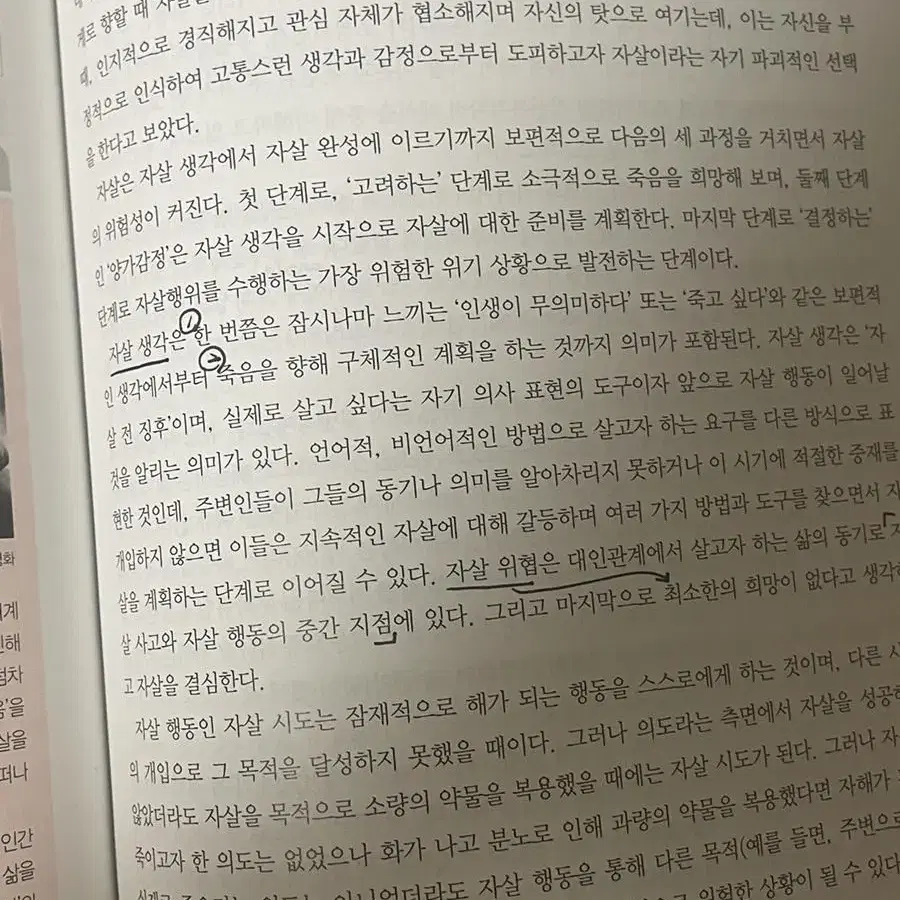 게로 향할 때 자살
때, 인지적으로 경직해지고 관심 자체가 협소해지며 자신의 탓으로 여기는데, 이는 자신을 부
정적으로 인식하여 고통스런 생각과 감정으로부터 도피하고자 자살이라는 자기 파괴적인 선택
을 한다고 보았다.
자살은 자살 생각에서 자살 완성에 이르기까지 보편적으로 다음의 세 과정을 거치면서 자살
의 위험성이 커진다. 첫 단계로, '고려하는' 단계로 소극적으로 죽음을 희망해 보며, 둘째 단계
인 '양가감정'은 자살 생각을 시작으로 자살에 대한 준비를 계획한다. 마지막 단계로 '결정하는'
단계로 자살행위를 수행하는 가장 위험한 위기 상황으로 발전하는 단계이다.
자살 생각은 ① 한 번쯤은 잠시나마 느끼는 '인생이 무의미하다' 또는 '죽고 싶다'와 같은 보편적
인 생각에서부터 ② 죽음을 향해 구체적인 계획을 하는 것까지 의미가 포함된다. 자살 생각은 '자
살 전 징후'이며, 실제로 살고 싶다는 자기 의사 표현의 도구이자 앞으로 자살 행동이 일어날
것을 알리는 의미가 있다. 언어적, 비언어적인 방법으로 살고자 하는 요구를 다른 방식으로 표
현한 것인데, 주변인들이 그들의 동기나 의미를 알아차리지 못하거나 이 시기에 적절한 중재를
개입하지 않으면 이들은 지속적인 자살에 대해 갈등하며 여러 가지 방법과 도구를 찾으면서 자
살을 계획하는 단계로 이어질 수 있다. 자살 위협은 대인관계에서 살고자 하는 삶의 동기로 자
살 사고와 자살 행동의 중간 지점에 있다. 그리고 마지막으로 최소한의 희망이 없다고 생각하
고 자살을 결심한다.
자살 행동인 자살 시도는 잠재적으로 해가 되는 행동을 스스로에게 하는 것이며, 다른 사
의 개입으로 그 목적을 달성하지 못했을 때이다. 그러나 의도라는 측면에서 자살을 성공하
않았더라도 자살을 목적으로 소량의 약물을 복용했을 때에는 자살 시도가 된다. 그러나 자
죽이고자 한 의도는 없었으나 화가 나고 분노로 인해 과량의 약물을 복용했다면 자해가
아니었더라도 자살 행동을 통해 다른 목적(예를 들면, 주변으로
위험한 상황이 될 수 있다
계
인해
점차
을
살을
떠나
인간
삶을